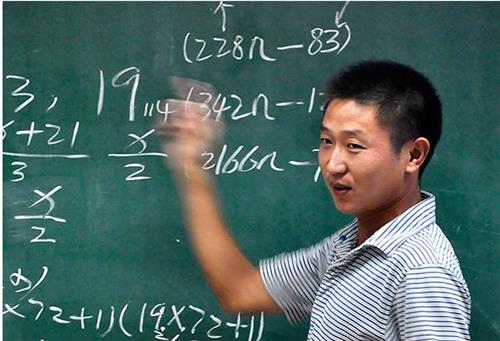 (228n-83)
3, 19,114 (342n-1
x+21 x (2166n-
3 2
x
2
x72+1)(19x72+1)